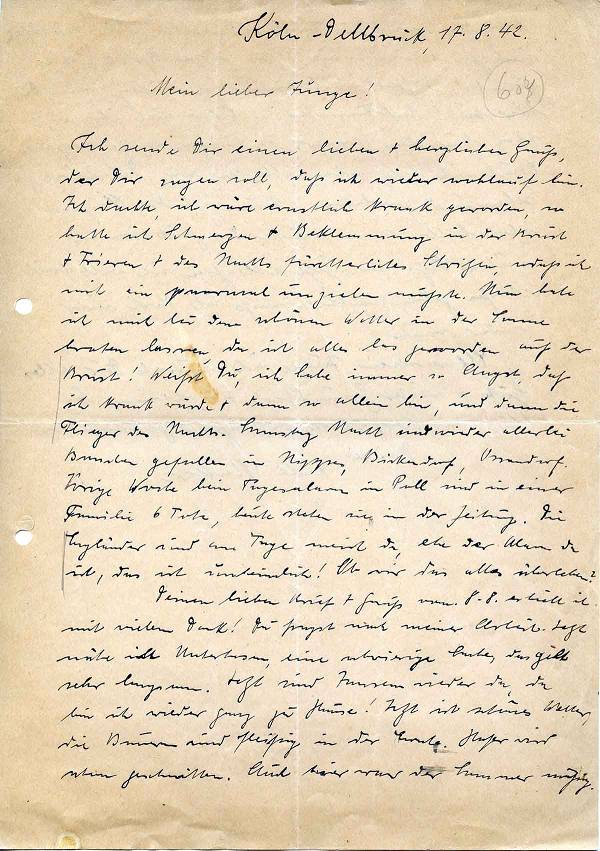 Köln-Dellbrück, 17.8.42.
Mein lieber Junge!
Ich sende Dir einen lieben + herzlichen Gruß,
der Dir sagen soll, daß ich wieder wohlauf bin.
Ich dachte, ich wäre ernstlich krank geworden, so
hatte ich Schmerzen + Beklemmung in der Brust
+ Frieren + des Nachts fürchterliches Schwitzen, sodaß ich
mich ein paarmal umziehen mußte. Nun habe
ich mich bei dem schönen Wetter in der Sonne
braten lassen, da ist alles los geworden auf der
Brust! Weißt Du, ich habe immer so Angst, daß
ich krank würde + dann so allein bin, und dann die
Flieger des Nachts. Samstag Nacht sind wieder allerlei
Bomben gefallen in Nippes, Bickendorf, Ossendorf.
Vorige Woche beim Tagesalarm in Poll sind in einer
Familie 6 Tote, heute stehen sie in der Zeitung. Die
Engländer sind am Tage meist da, ehe der Alarm da
ist, das ist unheimlich! Ob wir das alles überleben?
Deinen lieben Brief + Gruß vom 8.8. erhielt ich
mit vielem Dank! Du fragst nach meiner Arbeit. Jetzt
nähe ich Unterhosen, eine schwierige Sache, das geht
sehr langsam. Jetzt sind Jansens wieder da, da
bin ich wieder ganz zu Hause! Jetzt ist schönes Wetter,
die Bauern sind fleißig in der Ernte. Hafer wird
schon geschnitten. Auch hier war der Sommer